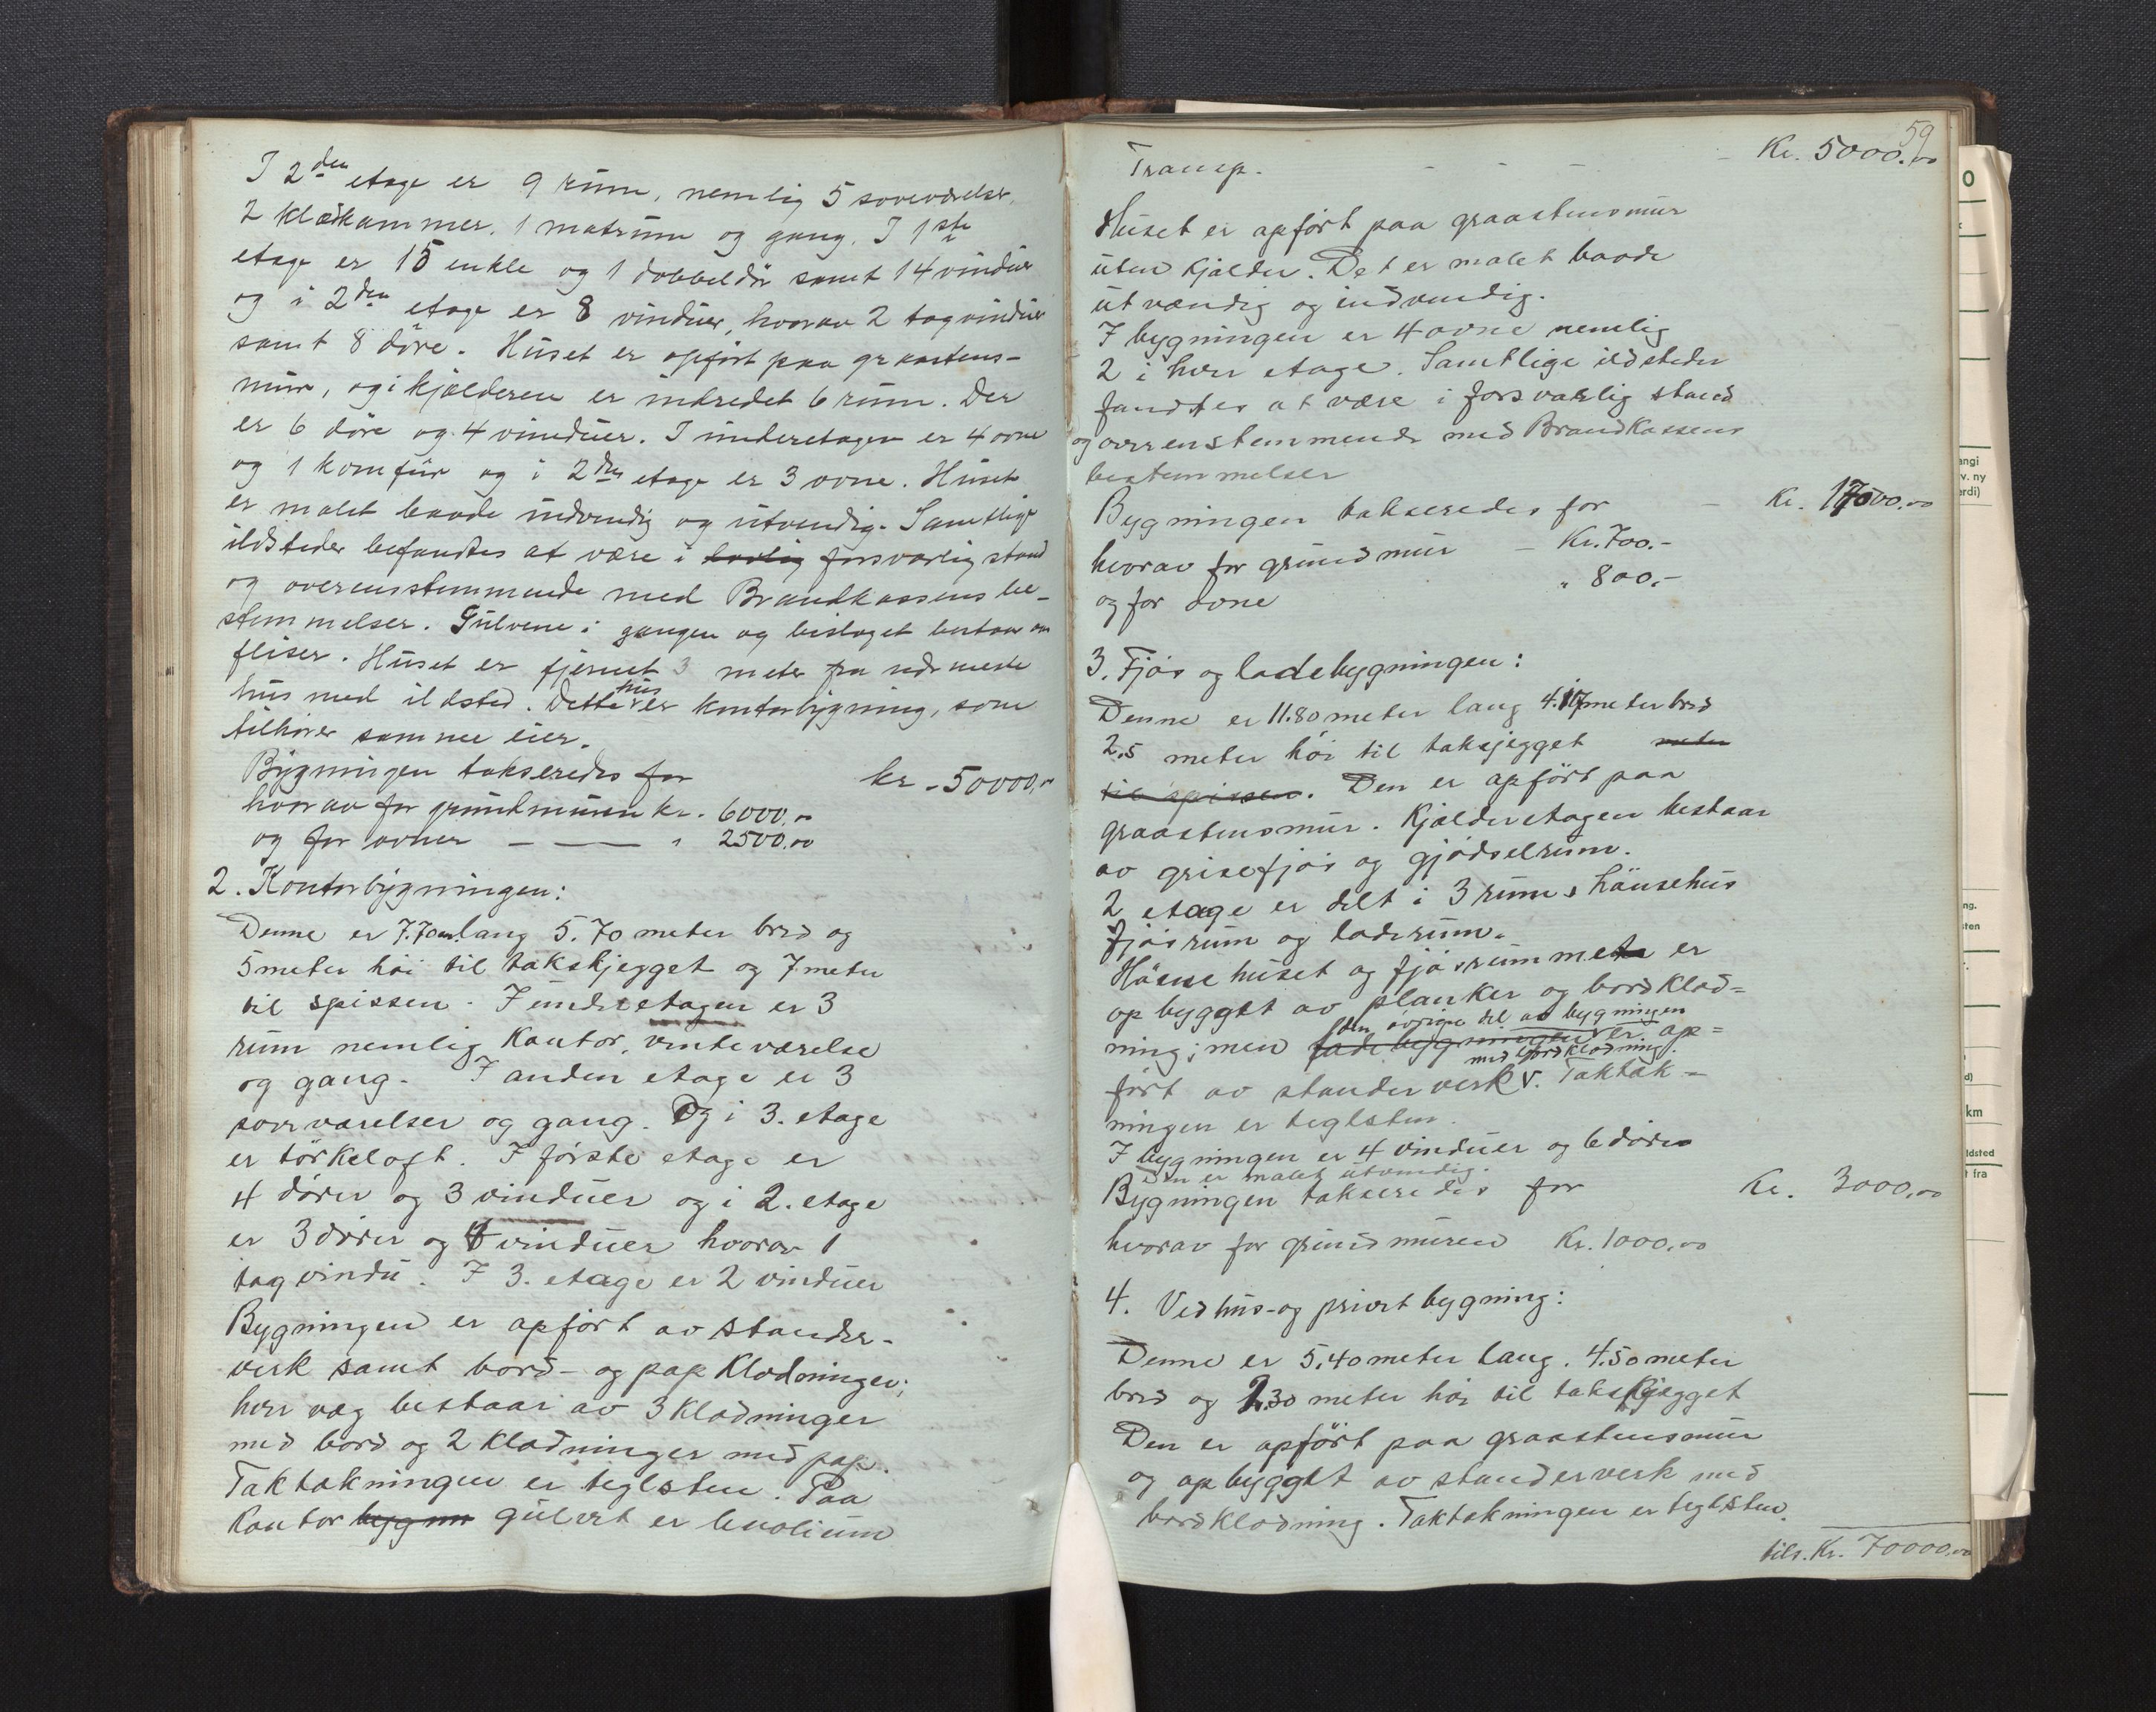 I 2den etage er 9 rum, nemlig 5 soveværelser,
2 klædkammer, 1 matrum og gang. I 1ste
etage er 15 enkle og 1 dobbeldör samt 14 vinduer
og i 2den etage er 8 vinduer, hvorav 2 tagvinduer
samt 8 döre. Huset er opfört paa graastens-
mur, og i kjælderen er indredet 6 rum. Der
er 6 döre og 4 vinduer. I underetagen er 4 ovne
og 1 komfür og i 2den etage er 3 ovne. Huset
er malet baade indvendig og utvendig. Samtlige
ildsteder befandtes at være i lovlig forsvarlig stand
og overensstemmende med Brandkassens be-
stemmelser. Gulvene i gangen og bislaget bestaar av
fliser. Huset er fjernet 3 meter fra nærmeste
hus med ildsted. Dette hus er kontorbygning, som
tilhörer samme eier.
Bygningen takseredes for kr. 50000,00
hvorav for grundmuren kr. 6000,00
og for ovner — — " 2500,00
2. Kontorbygningen:
Denne er 7.70m. lang 5.70 meter bred og
5 meter höi til takskjegget og 7 meter
til spissen. I underetagen er 3
rum nemlig Kontor, venteværelse
og gang. I anden etage er 3
soveværelser og gang. Og i 3. etage
er törkeloft. I förste etage er
4 dörer og 3 vinduer og i 2. etage
er 3 dörer og 4 vinduer hvorav 1
tagvindu. I 3. etage er 2 vinduer
Bygningen er opfört av stander-
verk samt bord- og pap klædninger;
hver væg bestaar av 3 klædninger
med bord og 2 klædninger med pap.
Taktækningen er teglsten. Paa
Kontor bygnin gulvet er linolium
59
Transp. - - - - Kr. 5000.00
Huset er opfört paa graastensmur
uten kjælder. Det er malet baade
utvændig og indvendig.
I bygningen er 4 ovne nemlig
2 i hver etage. Samtlige ildsteder
fandtes at være i forsvarlig stand
og overenstemmende med Brandkassens
bestemmelser
Bygningen takseredes for - Kr. 17000.00
hvorav for grundmur - Kr. 700.-
og for ovne " 800.-
3. Fjös og ladebygningen:
Denne er 11.80 meter lang 4.17 meter bred
2.5 meter höi til taksjegget meter
til spissen. Den er opfört paa
graastensmur. Kjælderetagen bestaar
av grisefjös og gjödselrum.
2 etage er delt i 3 rum: hönsehus
fjösrum og laderum.
Hönsehuset og fjösrummet er
op bygget av planker og bordklæd=
den övrige del av bygningen
ning; men ladebygningen er op=
med bordklædning.
fört av standerverk. Taktæk-
ningen er teglsten.
I bygningen er 4 vinduer og 6 dörer
Den er malet utvendig.
Bygningen takseredes for Kr. 3000,00
hvorav for grundmuren Kr. 1000,00
4. Vedhus- og privet bygning:
Denne er 5,40 meter lang. 4.50 meter
bred og 2.30 meter höi til takskjægget
Den er opfört paa graastensmur
og op bygget av standerverk med
bordklædning. Taktækningen er teglsten.
tils. Kr. 70000.00